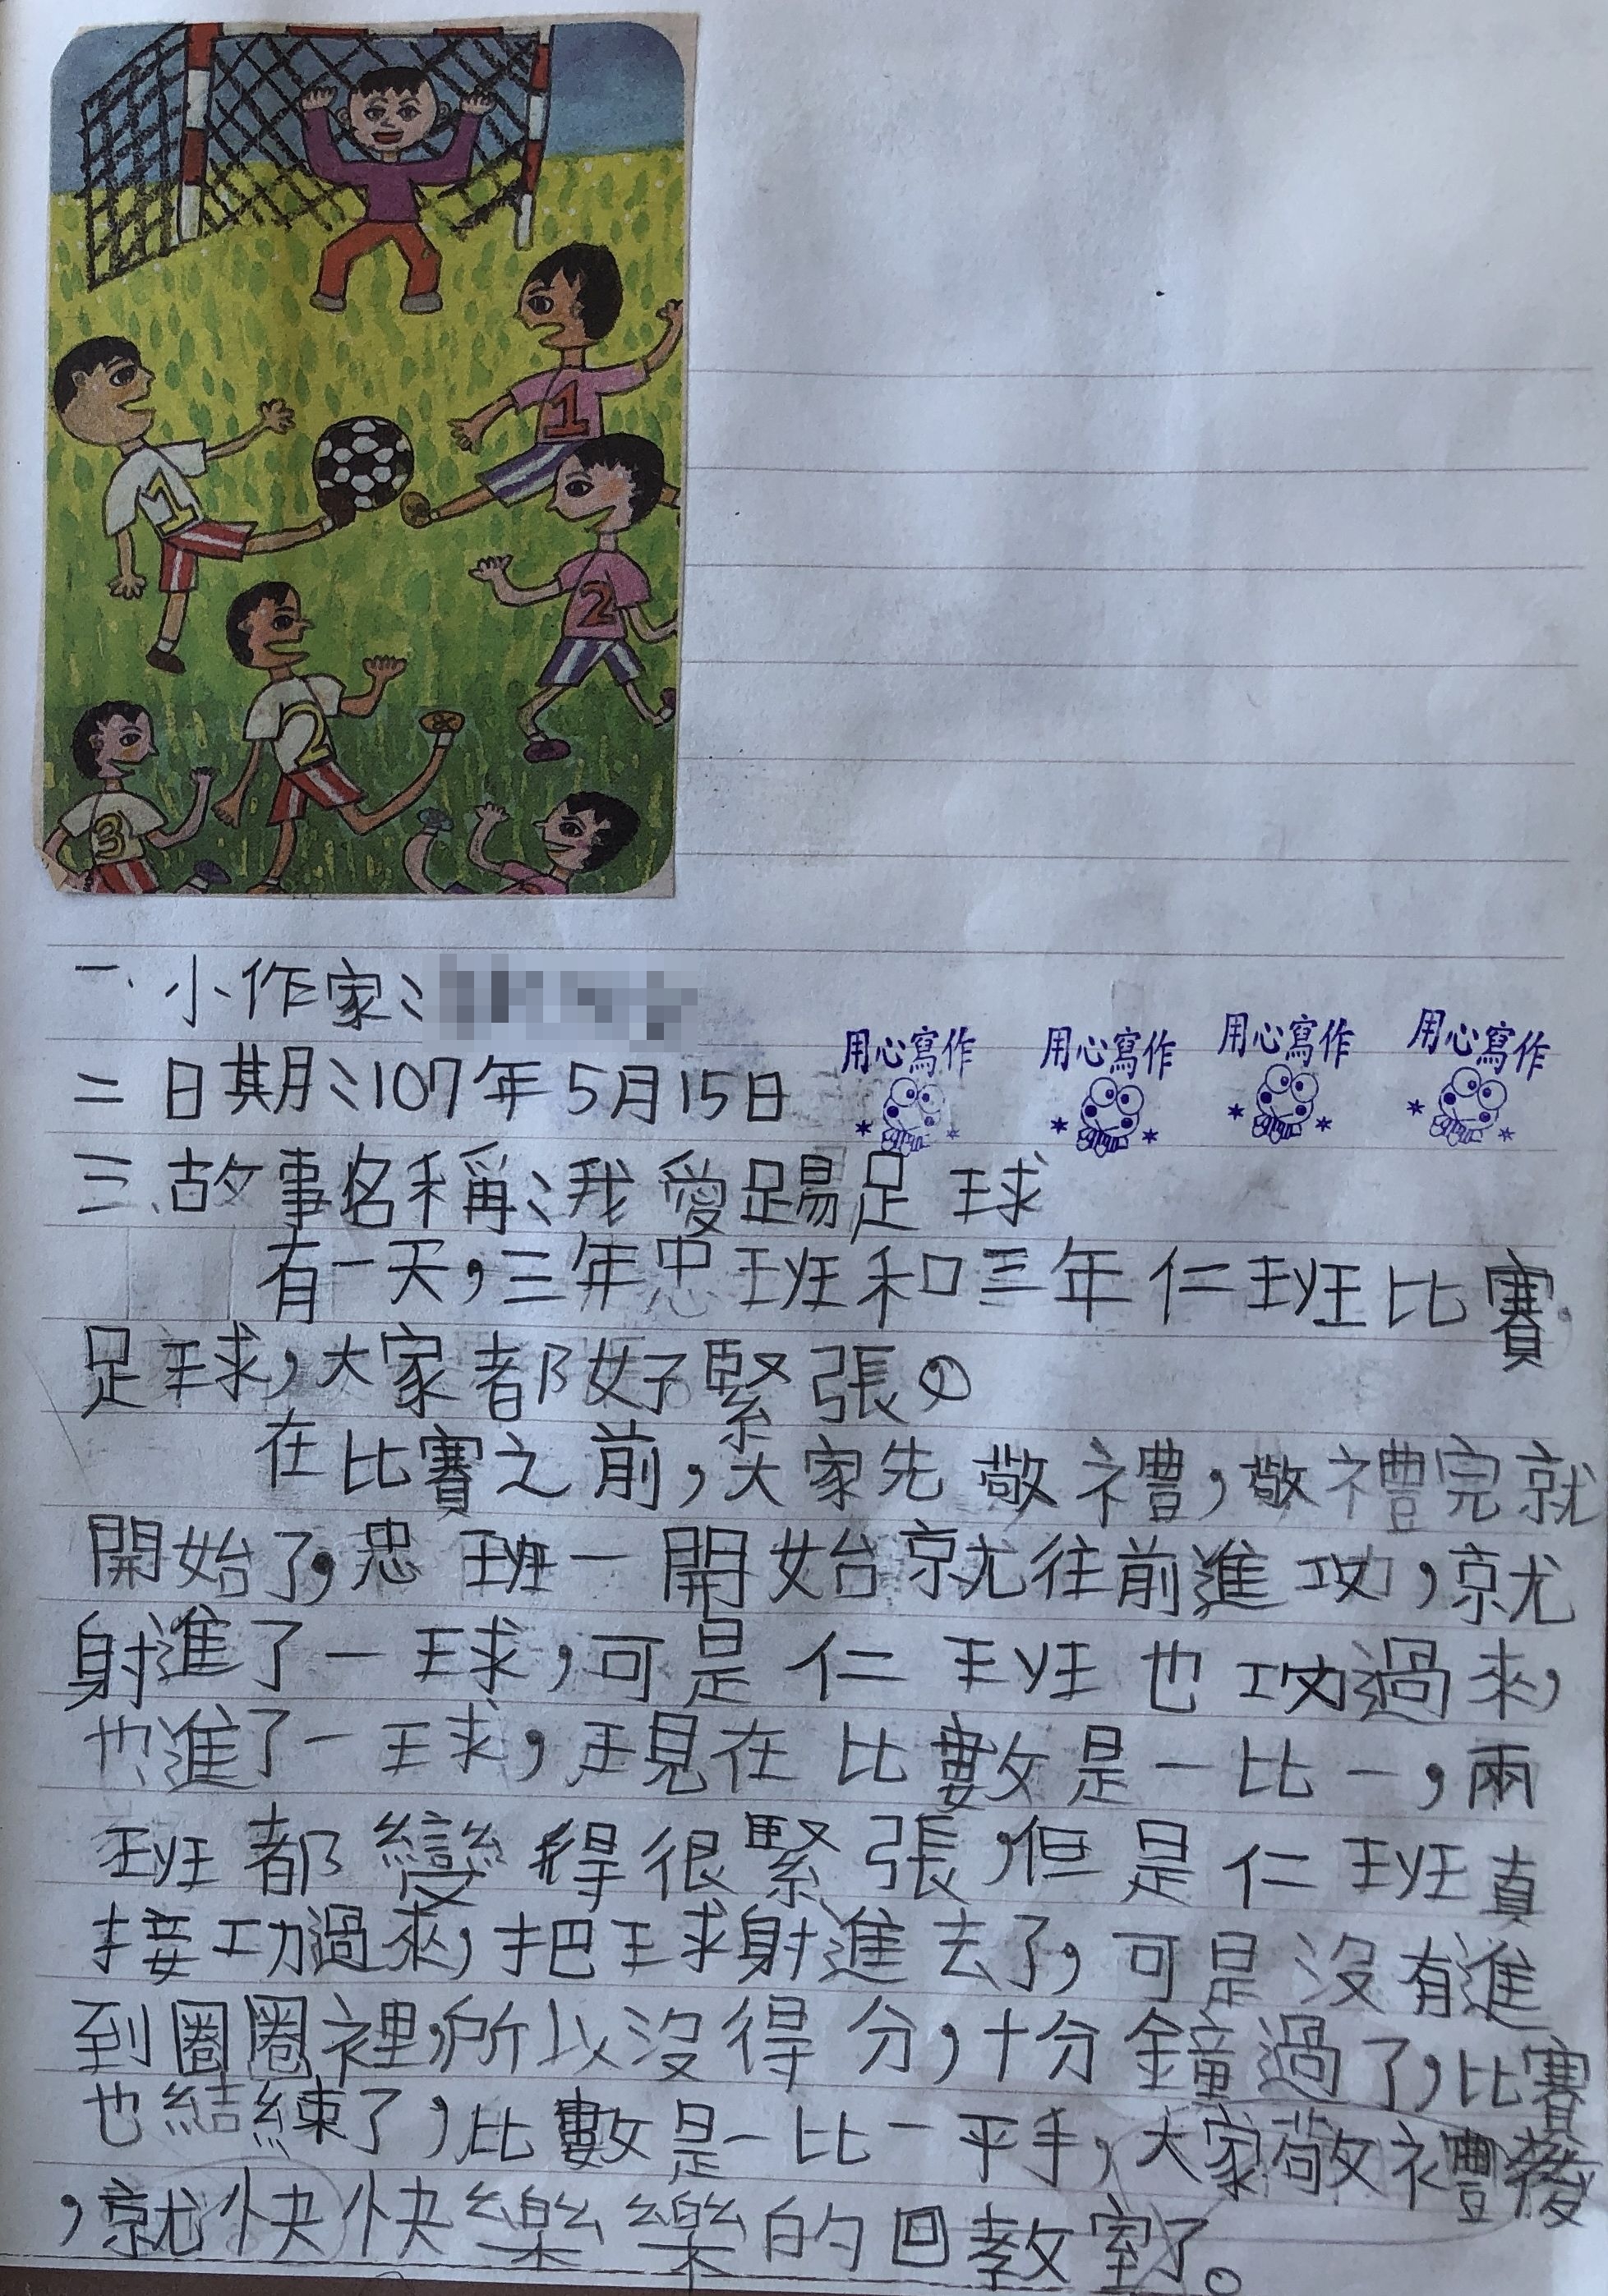 1
1
2
2
3
一、小作家：
用心寫作 用心寫作 用心寫作 用心寫作
二 日期：107年5月15日
三、故事名稱：我愛踢足球
有一天，三年忠班和三年仁班比賽
足球，大家都好緊張。
在比賽之前，大家先敬禮，敬禮完就
開始了，忠班一開始就往前進攻，就
射進了一球，可是仁班也攻過來，
也進了一球，現在比數是一比一，兩
班都變得很緊張，但是仁班真
接功過來，把球射進去了，可是沒有進
到圈圈裡，所以沒得分，十分鐘過了，比賽
也結練了，比數是一比一平手，大家敬禮後
，就快快樂樂的回教室了。